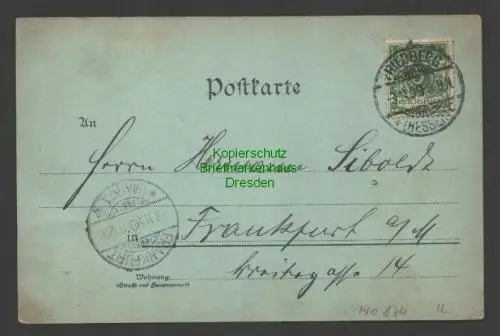 Postkarte
FRIEDBERG
(HESSEN)
An
Kopierschutz
Briefmarkenhaus
Dresden
Herrn Hermann Siboldt
in
Frankfurt a/M
FRANKFURT
Wohnung
(Straße und Hausnummer)
Breitegasse 14
140 834